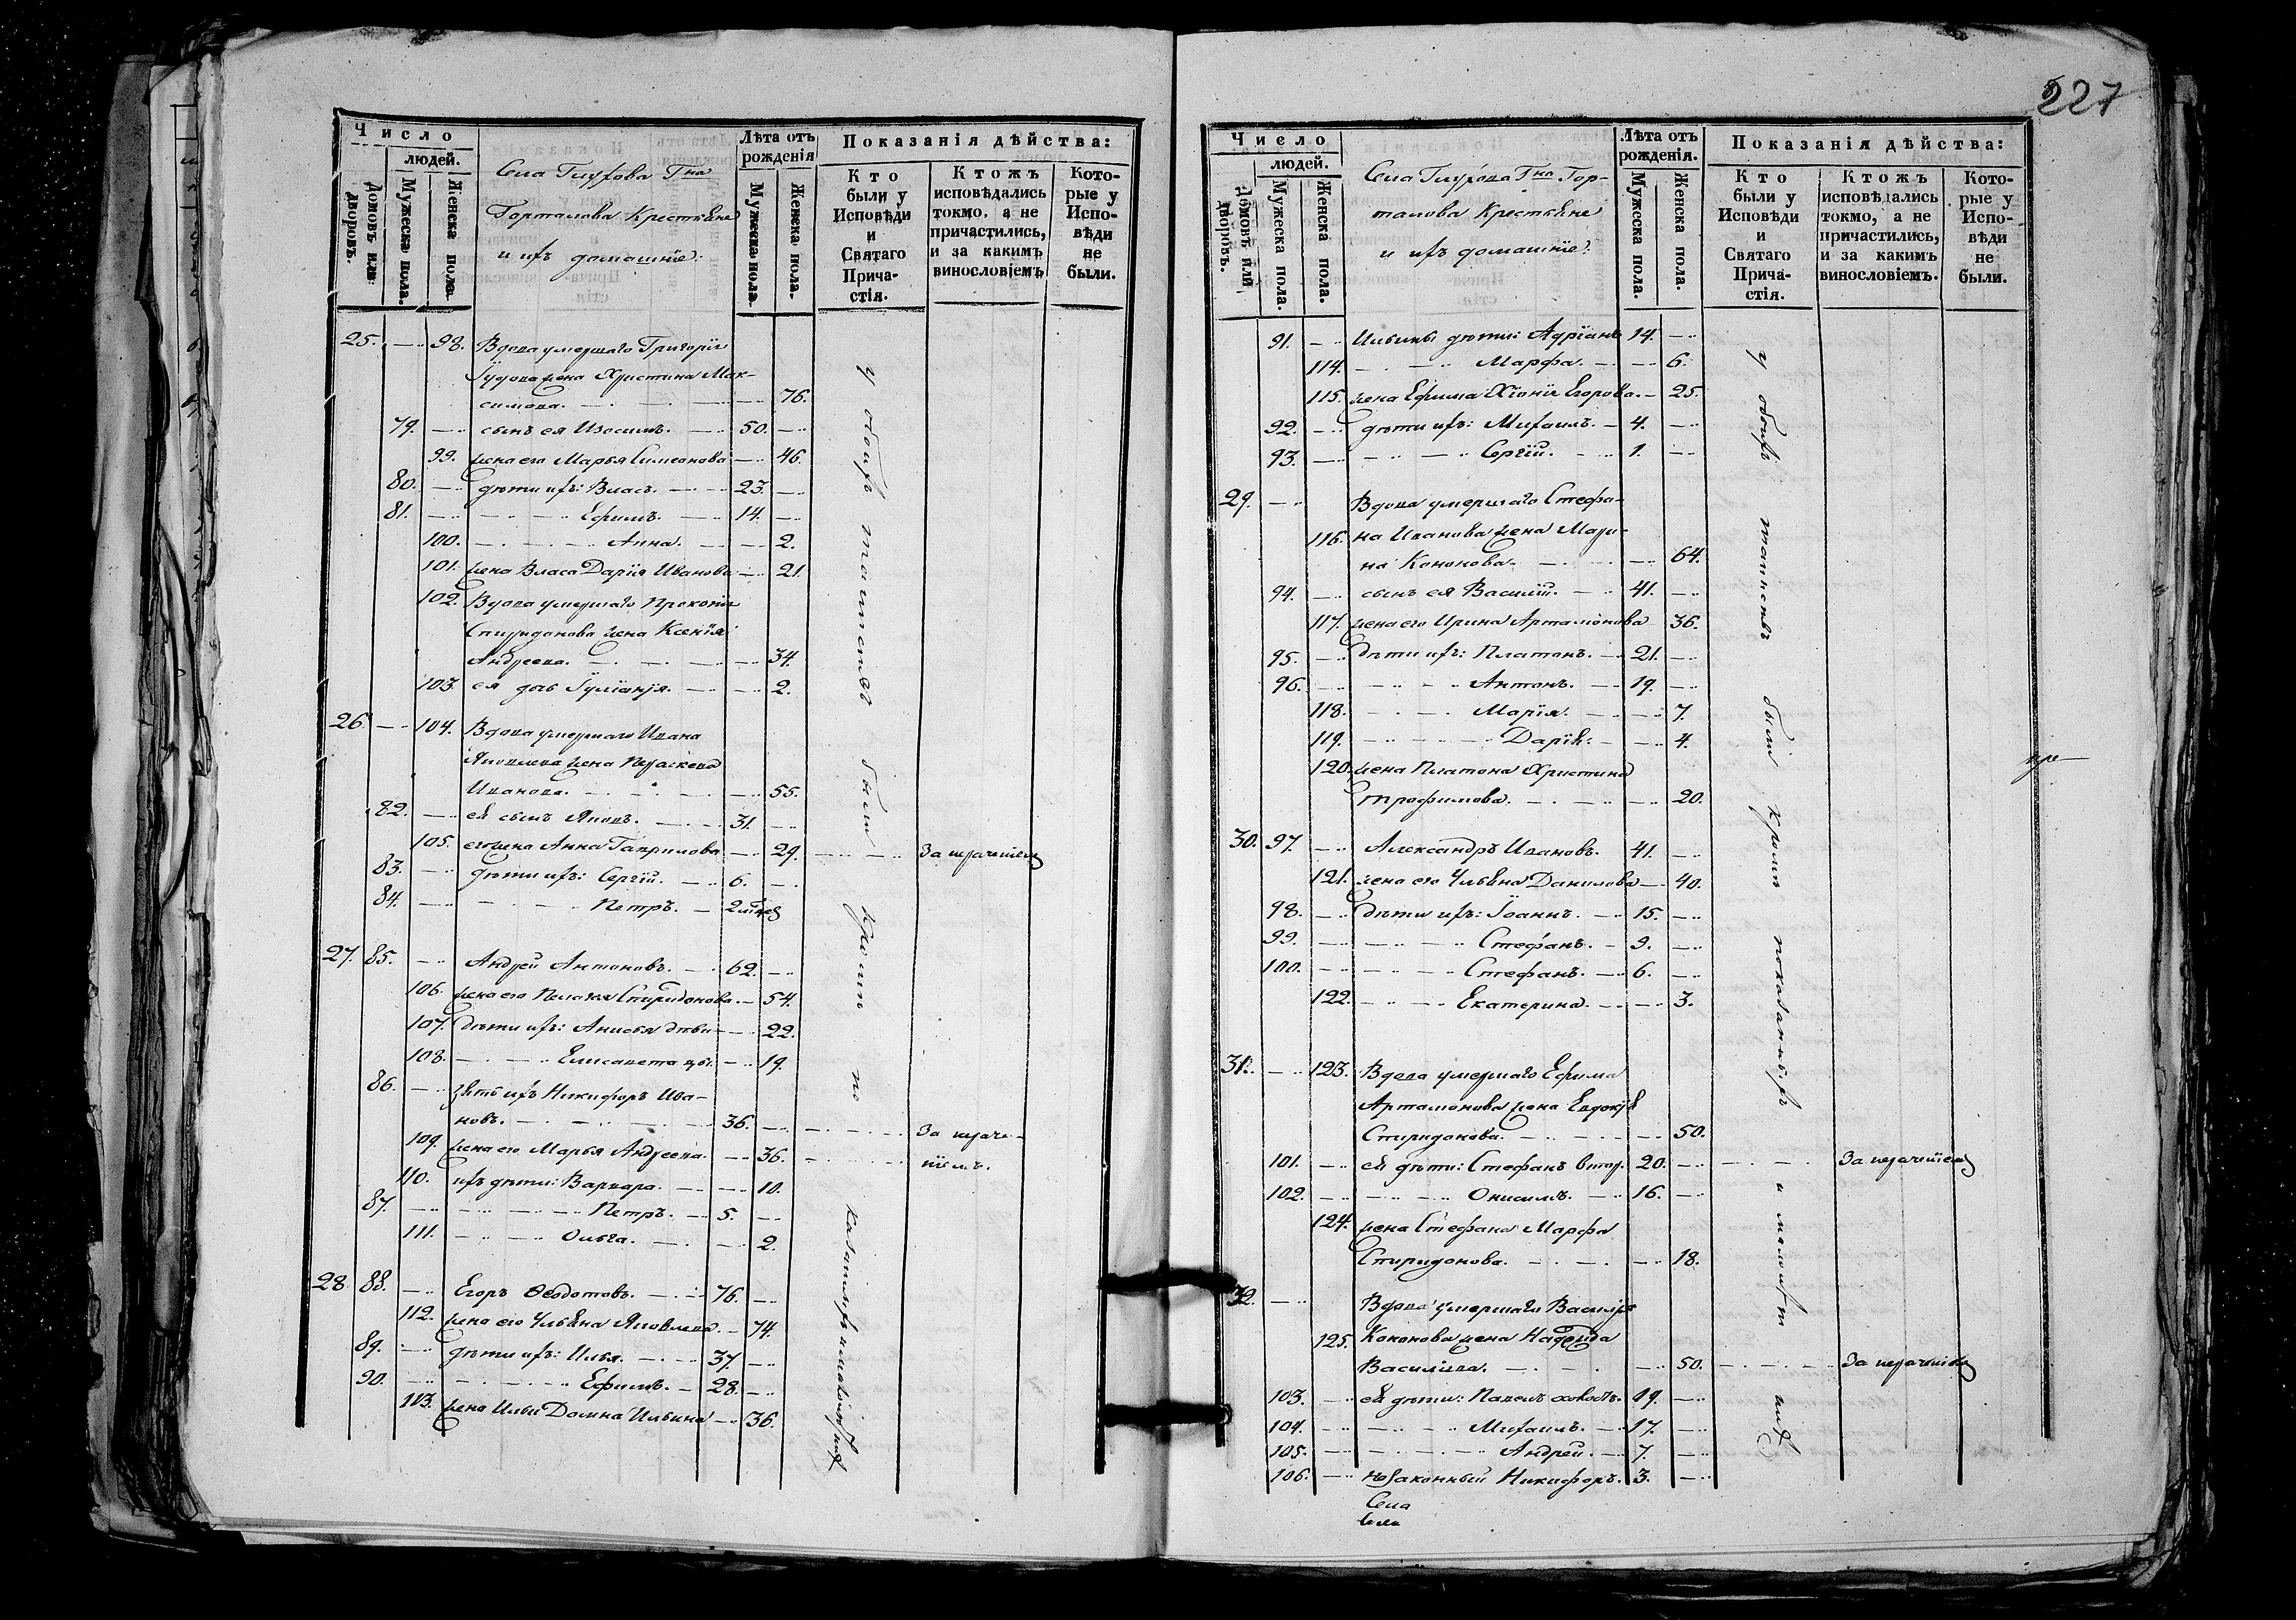 Число
людей.
Домовъ или дворовъ.
Мужеска пола.
Женска пола.
Села Глухова Гна
Горталова Крестьяне
и ихъ домашніе:
Лѣта отъ рожденія
Мужеска пола.
Женска пола.
Показанія дѣйства:
Кто были у Исповѣди и Святаго Причастія.
Ктожъ исповѣдались токмо, а не причастились, и за какимъ винословіемъ
Которые у Исповѣди не были.
25. — 98. Вдова умершаго Григорія
Іудова жена Христина Мак-
симова. — — 76.
79. — сынъ ея Изосимъ. — 50. —
99. жена его Марья Симеонова — 46.
80. — дѣти ихъ: Власъ. — 23. —
81. — — Ефимъ. — 14. —
100. — Анна. — — 2.
101. жена Власа Дарія Иванова — 21.
102. Вдова умершаго Прокопія
Спиридонова жена Ксенія
Андреева. — — 34.
103. ея дочь Іуліанія. — — 2.
26 — 104. Вдова умершаго Ивана
Яковлева жена Параскева
Иванова. — — 55.
82. — ея сынъ Яковъ. — 31. —
105. его жена Анна Гаврилова — 29. — За нерачѣніемъ
83. — дѣти ихъ: Сергій. — 6. —
84. — — Петръ. — 2 мѣся
27. 85. — Андрей Антоновъ. — 62. —
106. жена его Пелагія Спиридонова. — 54.
107. дѣти ихъ: Анисья дѣви — 22.
108. — Елисавета — 19.
86. — зять ихъ Никифоръ Ива-
новъ. — 36. — За нераче-
109. жена его Марья Андреева. — 36. — ніемъ.
110. ихъ дѣти: Варвара. — — 10.
87. — — Петръ. — 5. —
111. — Ольга. — — 2.
28. 88. — Егоръ Ѳеодотовъ. — 76. —
112. жена его Ульяна Яковлева. — 74.
89. — дѣти ихъ: Илья. — 37. —
90. — — Ефимъ. — 28. —
113. жена Ильи Домна Ильина — 36.
у обоихъ таинствъ были кромѣ по
казанныхъ и малолѣтнихъ
227
Число
людей.
Домовъ или дворовъ.
Мужеска пола.
Женска пола.
Села Глухова Гна Гор-
талова Крестьяне
и ихъ домашніе:
Лѣта отъ рожденія.
Мужеска пола.
Женска пола.
Показанія дѣйства:
Кто были у Исповѣди и Святаго Причастія.
Ктожъ исповѣдались токмо, а не причастились, и за какимъ винословіемъ.
Которые у Исповѣди не были.
91. — Ильины дѣти: Адріанъ 14. —
114. — Марфа. — — 6.
115. жена Ефима Хіонія Егорова. — 25.
92. — дѣти ихъ: Михаилъ. — 4. —
93. — — Сергій. — 1. —
29. — Вдова умершаго Стефа-
116. на Иванова жена Мари-
на Кононова. — — 64.
94. — сынъ ея Василій. — 41. —
117. жена его Ирина Артамонова 36.
95. — дѣти ихъ: Платонъ. — 21. —
96. — — Антонъ. — 19. —
118. — Марія. — — 7.
119. — Дарія. — — 4.
120. жена Платона Христина
Трофимова. — — 20.
30. 97. — Александръ Ивановъ. 41. —
121. жена его Ульяна Данилова — 40.
98. — дѣти ихъ: Іоаннъ. — 15. —
99. — — Стефанъ. — 9. —
100. — — Стефанъ. — 6. —
122. — Екатерина. — — 3.
31. — 123. Вдова умершаго Ефима
Артамонова жена Евдокія
Спиридонова. — — 50.
101. — ея дѣти: Стефанъ втор. 20. — За нерачѣніемъ
102. — — Онисимъ. — 16. —
124. жена Стефана Марфа
Спиридонова. — — 18.
32. — Вдова умершаго Василія
125. Кононова жена Надежда
Василіева. — — 50. — За нерачѣніемъ
103. — ея дѣти: Павелъ холостъ. 19. —
104. — — Михаилъ. — 17. —
105. — — Андрей. — 7. —
106. — незаконный Никифоръ. 3. —
Села
у обоихъ таинствъ были кромѣ показанныхъ и малолѣтнихъ